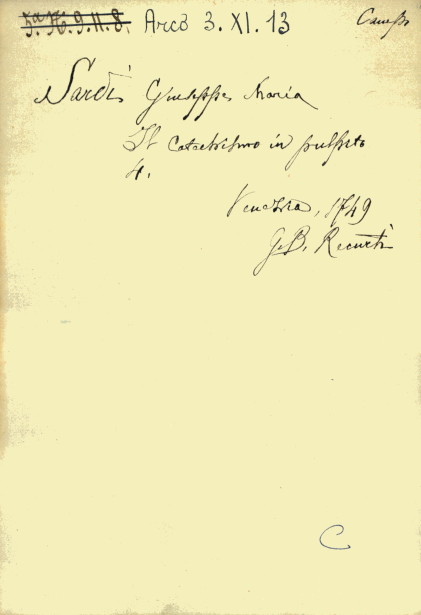 5.a H. 9. 11. 8. Arco 3. XI. 13
Sardi Giuseppe Maria
Il Catechismo in pulpito
4.
Venezia, 1749
G. B. Recurti
C